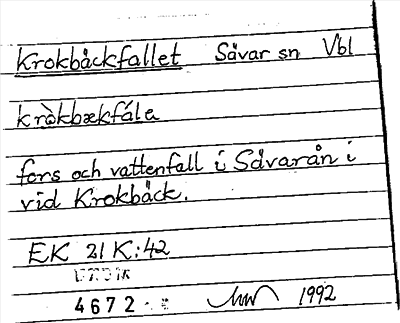 Krokbäckfallet Sävar sn Vbl
kròkbækfála
fors och vattenfall i Sävarån i
vid Krokbäck.
EK 21 K:42
4672
1992